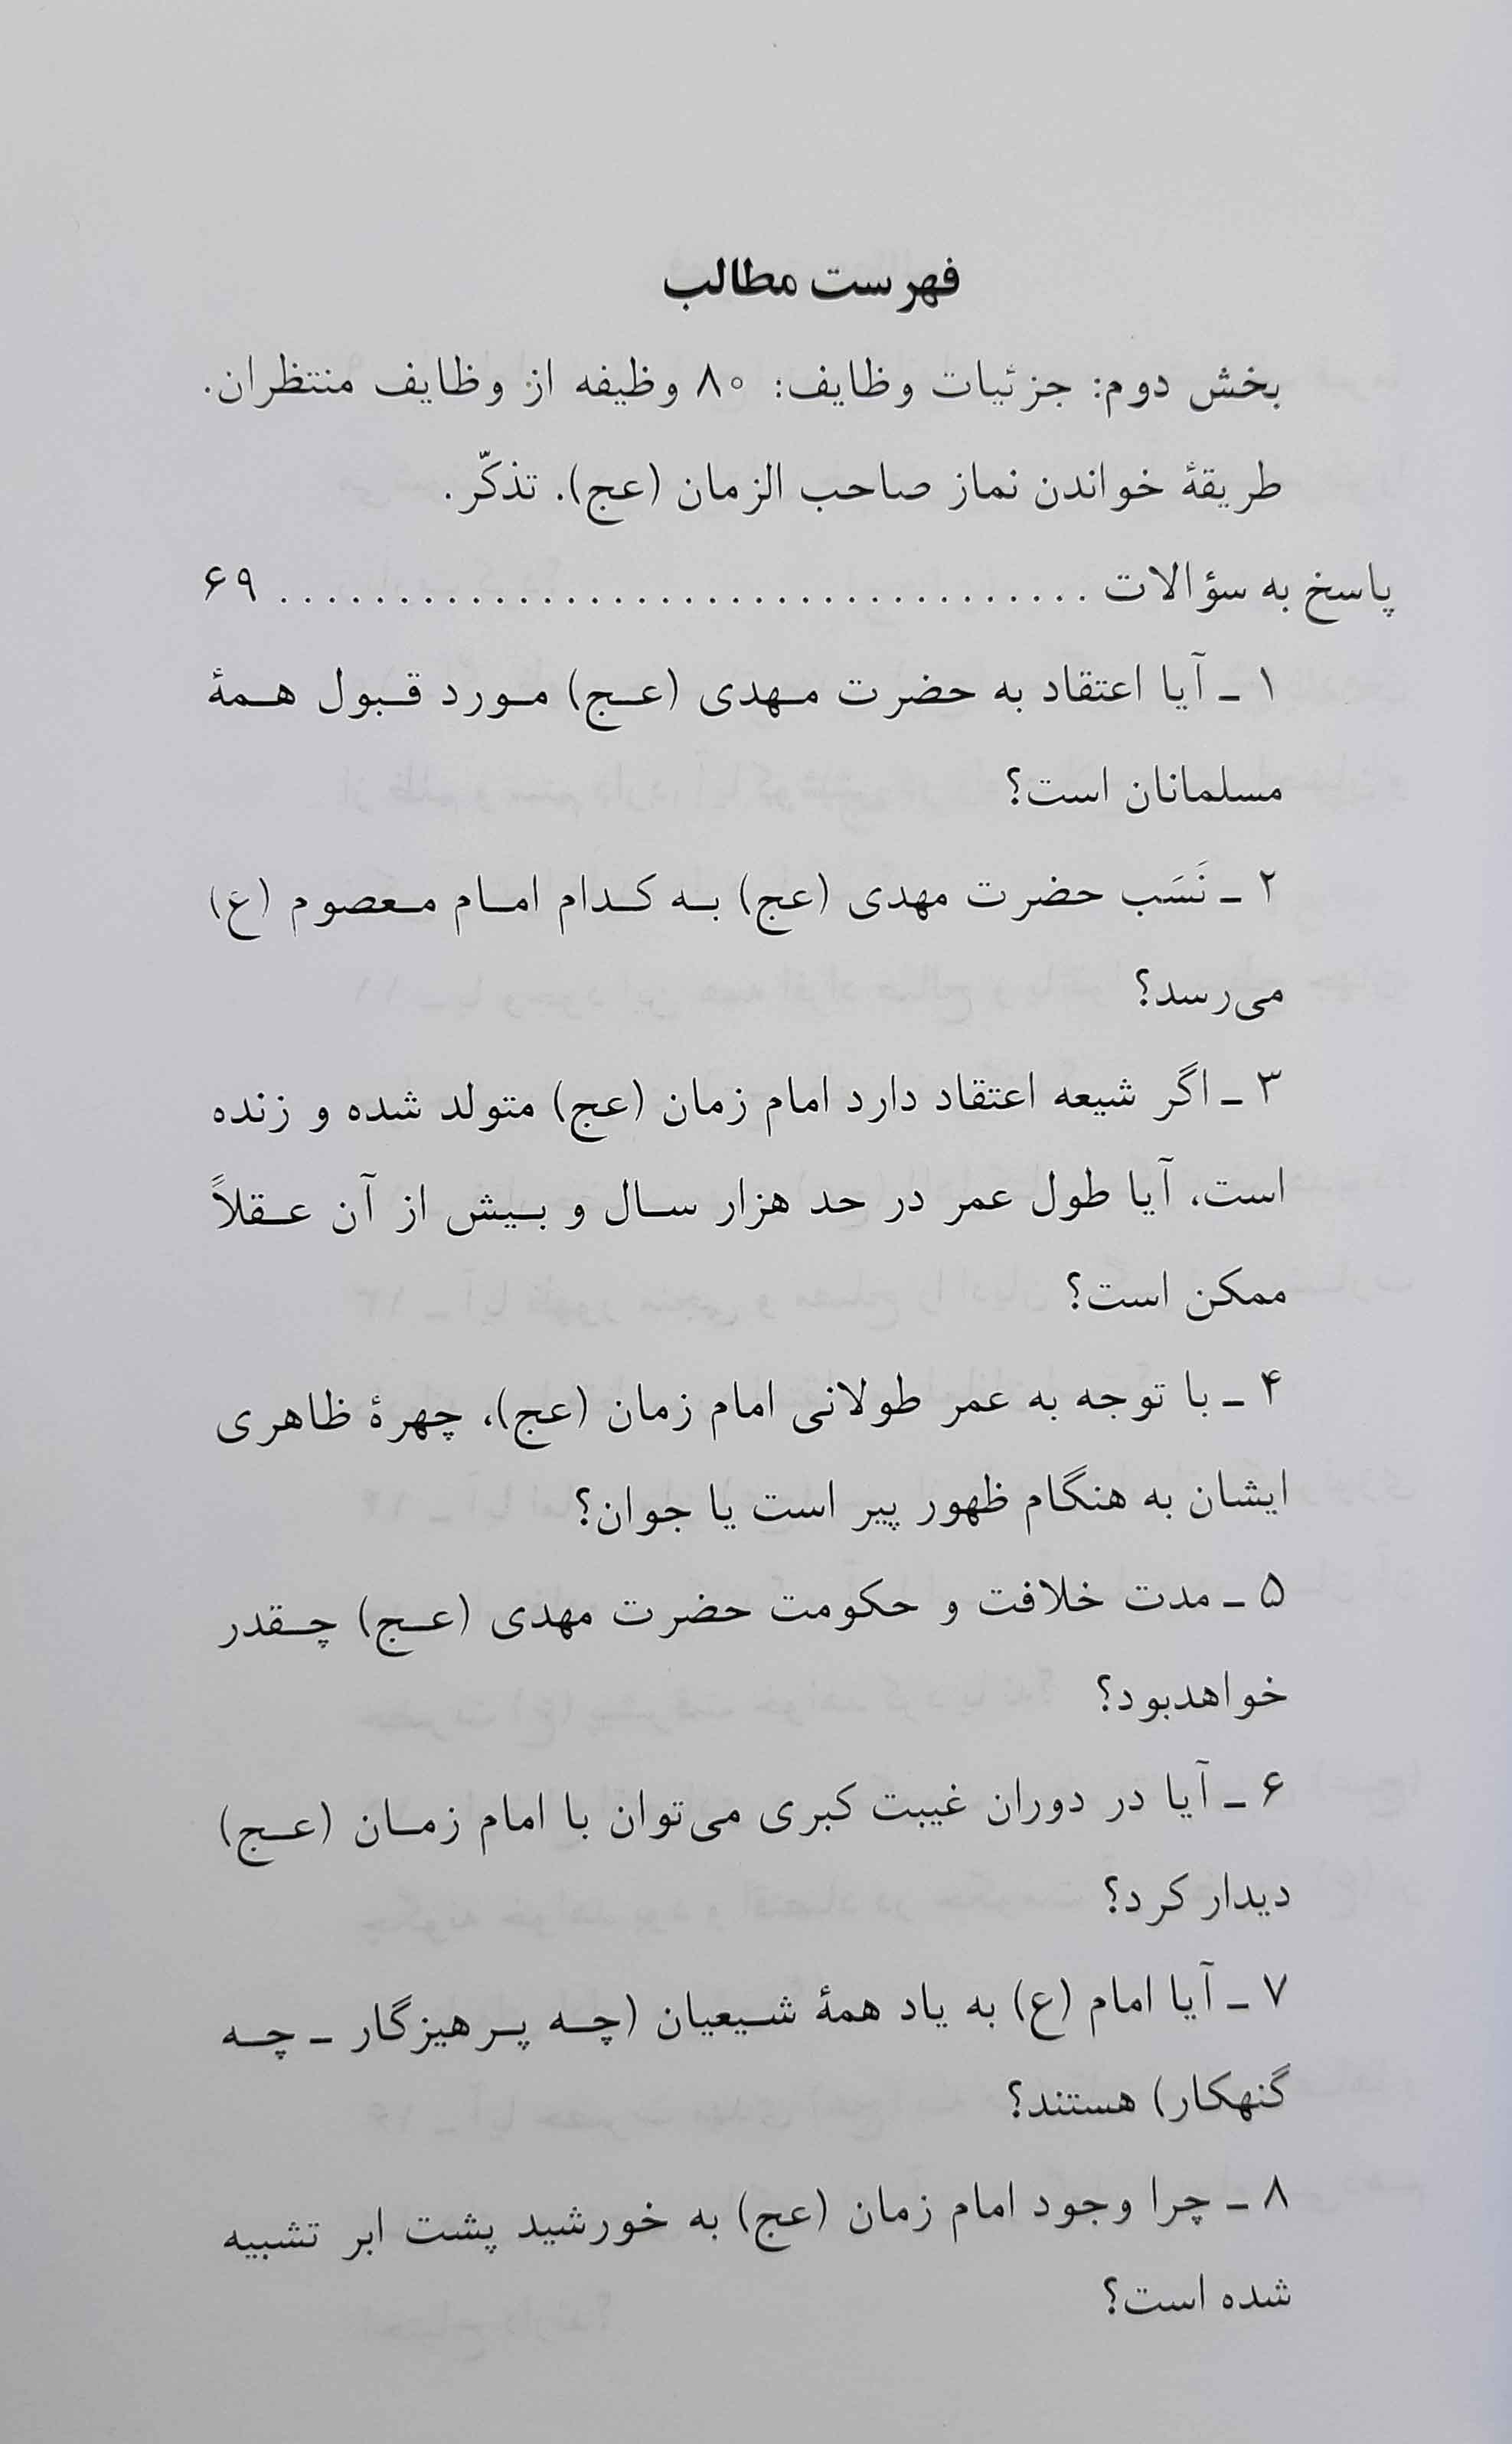 فهرست مطالب
بخش دوم: جزئیات وظایف: ۸۰ وظیفه از وظایف منتظران.
طریقهٔ خواندن نماز صاحب الزمان (عج). تذکّر.
پاسخ به سؤالات ................................ ۶۹
۱ ـ آیا اعتقاد به حضرت مـهدی (عـج) مـورد قـبول هـمهٔ
مسلمانان است؟
۲ ـ نَسَب حضرت مهدی (عج) بـه کـدام امـام مـعصوم (ع)
می‌رسد؟
۳ ـ اگر شیعه اعتقاد دارد امام زمان (عج) متولد شده و زنده
است، آیا طول عمر در حد هزار سـال و بـیش از آن عـقلاً
ممکن است؟
۴ ـ با توجه به عمر طولانی امام زمان (عج)، چهرهٔ ظاهری
ایشان به هنگام ظهور پیر است یا جوان؟
۵ ـ مدت خلافت و حکومت حضرت مهدی (عـج) چـقدر
خواهدبود؟
۶ ـ آیا در دوران غیبت کبری می‌توان با امام زمـان (عـج)
دیدار کرد؟
۷ ـ آیا امام (ع) به یاد همهٔ شـیعیان (چـه پـرهیزگار ـ چـه
گنهکار) هستند؟
۸ ـ چرا وجود امام زمان (عج) به خورشید پشت ابر تشبیه
شده است؟